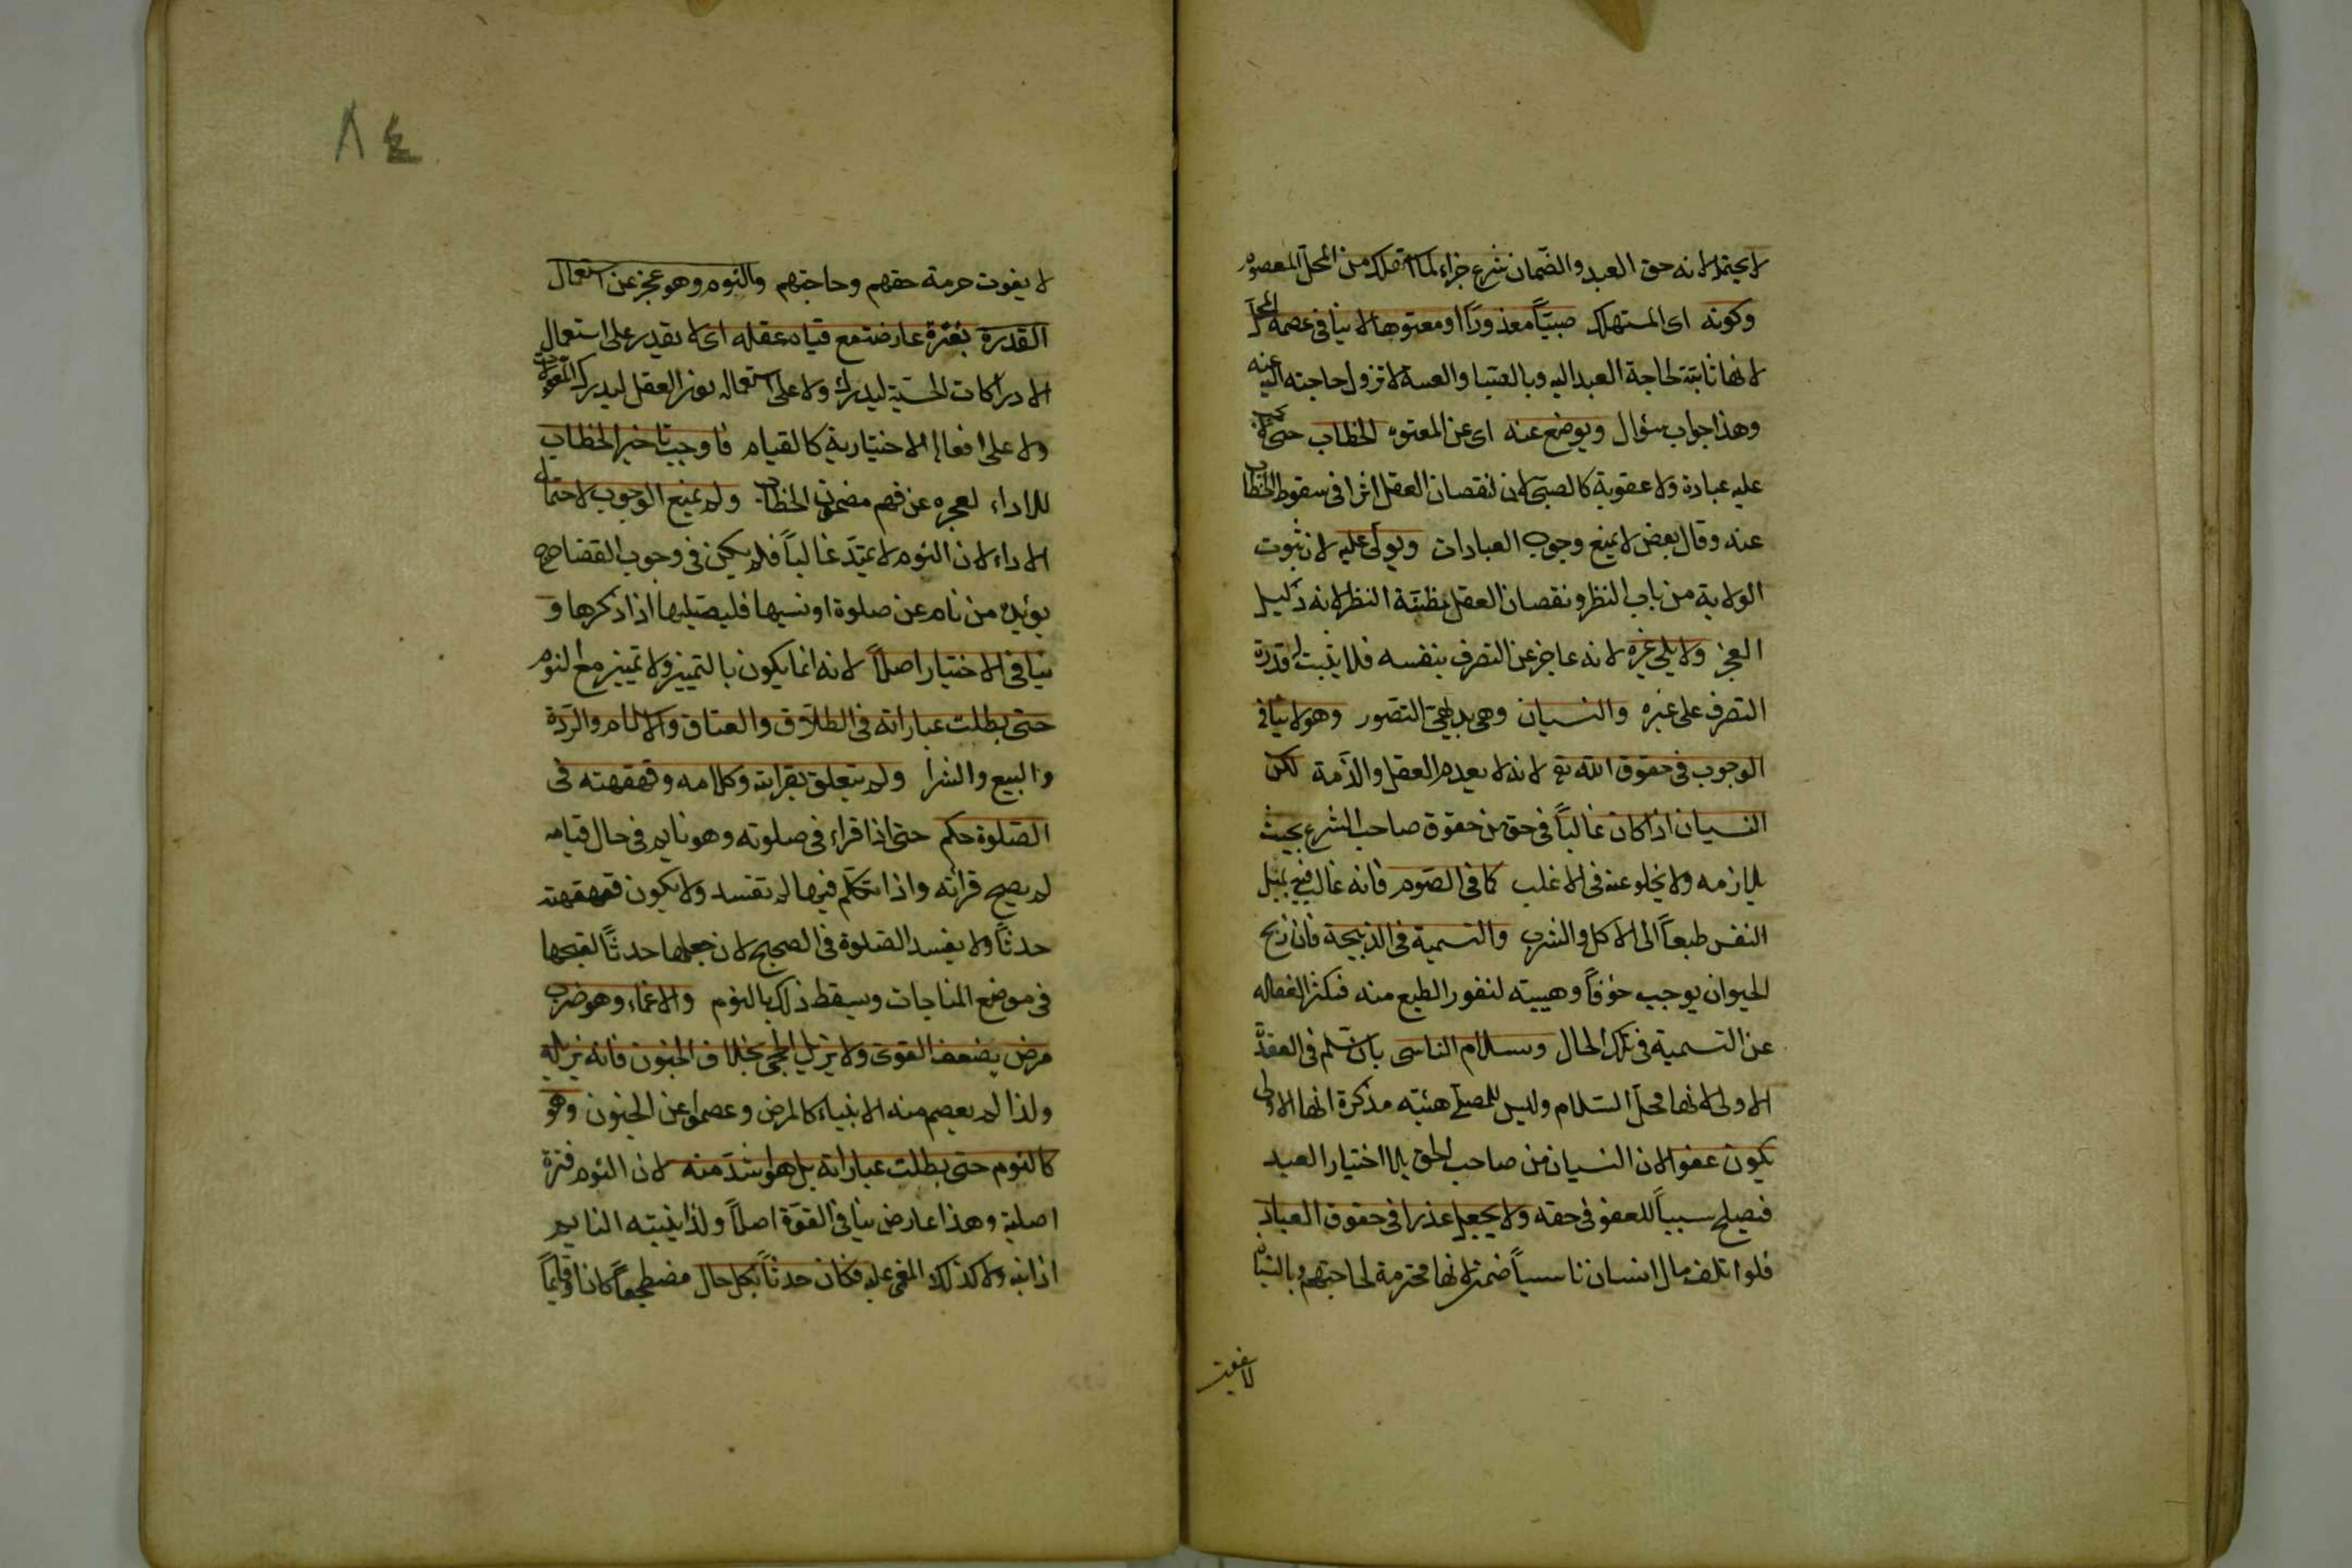 لا يحتمله لانه حق العبد والضمان شرع جزاء لما استهلك من المحل المعصوم
وكونه اى المستهلك صبيّاً معذوراً او معتوها لا ينافى عصمة المحل
لانها ثابتة لحاجة العبد اليه وبالصبا والعته لا تزول حاجته اليه عنه
وهذا جواب سؤال ويوضع عنه اى عن المعتوه الخطاب حتى لا تجب
عليه عبادة ولا عقوبة كالصبى لان لنقصان العقل اثرا فى سقوط الخطاب
عنه وقال بعض لا يمنع وجوب العبادات ويولّى عليه لان ثبوت
الولاية من باب النظر ونقصان العقل مظنّة النظر لانه دليل
العجز ولا يلى غيره لانه عاجز عن التصرف بنفسه فلا يثبت له قدرة
التصرف على غيره والنسيان وهى بديهىّ التصور وهو لا ينافى
الوجوب فى حقوق الله تع لانه لا يعدم العقل والذّمة لكن
النسيان اذا كان غالباً فى حق من حقوق صاحب الشرع بحيث
يلازمه ولا يخلو عنه فى الاغلب كما فى الصوم فانه غالب فيه بميل
النفس طبعاً الى الاكل والشرب والتسمية فى الذبيحة فان ذبح
الحيوان يوجب خوفاً وهيبته لنفور الطبع منه فتكثر الغفاله
عن التسمية فى تلك الحال وسلام الناسى بان سلم فى القعدة
الاولى لانها محلّ السّلام وليس للمصلّى هئيته مذكرة انها الاولى
يكون عفوا لان النسيان من صاحب الحق بلا اختيار العبد
فيصلح سبباً للعفو فى حقه ولا يجعل عذرا فى حقوق العباد
فلو اتلف مال انسان ناسياً ضمن لانها محترمة لحاجتهم وبالنسيان
لا يفوت
٨٤
لا يفوت حرمة حقهم وحاجتهم والنوم وهو عجز عن استعمال
القدرة بفترة عارضة مع قيام عقله اى لا يقدر على استعمال
الادراكات الحسّية ليدرك ولا على استعماله نور العقل ليدرك المعقولات
ولا على افعاله الاختيارية كالقيام فاوجب تاخير الخطاب
للاداء لعجزه عن فهم مضمون الخطاب ولم يمنع الوجوب لاحتمال
الاداء لان النوم لا يمتدّ غالباً فلم يكن فى وجوب القضا حرج
يؤيده من نام عن صلوة او نسيها فليصليها اذا ذكرها و
ينافى الاختيار اصلاً لانه انما يكون بالتمييز ولا تمييز مع النوم
حتى بطلت عباراته فى الطلاق والعتاق والاسلام والرّدة
والبيع والشرا ولم يتعلق بقراته وكلامه وقهقهته فى
الصّلوة حكم حتى اذا قراء فى صلوته وهو نايم فى حال قيامه
لم يصح قرائه واذا تكلّم فيها لم تفسد ولا يكون قهقهته
حدثاً ولا يفسد الصّلوة فى الصحيح لان جعلها حدثاً لقبحها
فى موضع المناجات وسقط ذلك بالنوم والاغماء وهو ضرب
مرض يضعف القوى ولا يزيل الحجى بخلاف الجنون فانه يزيله
ولذا لم يعصم منه الانبياء كالمرض وعصموا عن الجنون وهو
كالنوم حتى بطلت عباراته بل هو اشدّ منه لان النوم فترة
اصلية وهذا عارض ينافى القوّة اصلاً ولذا ينبته النايم
اذا نبه ولا كذلك المغمى عليه فكان حدثاً بكل حال مضطجعاً كان او قايماً